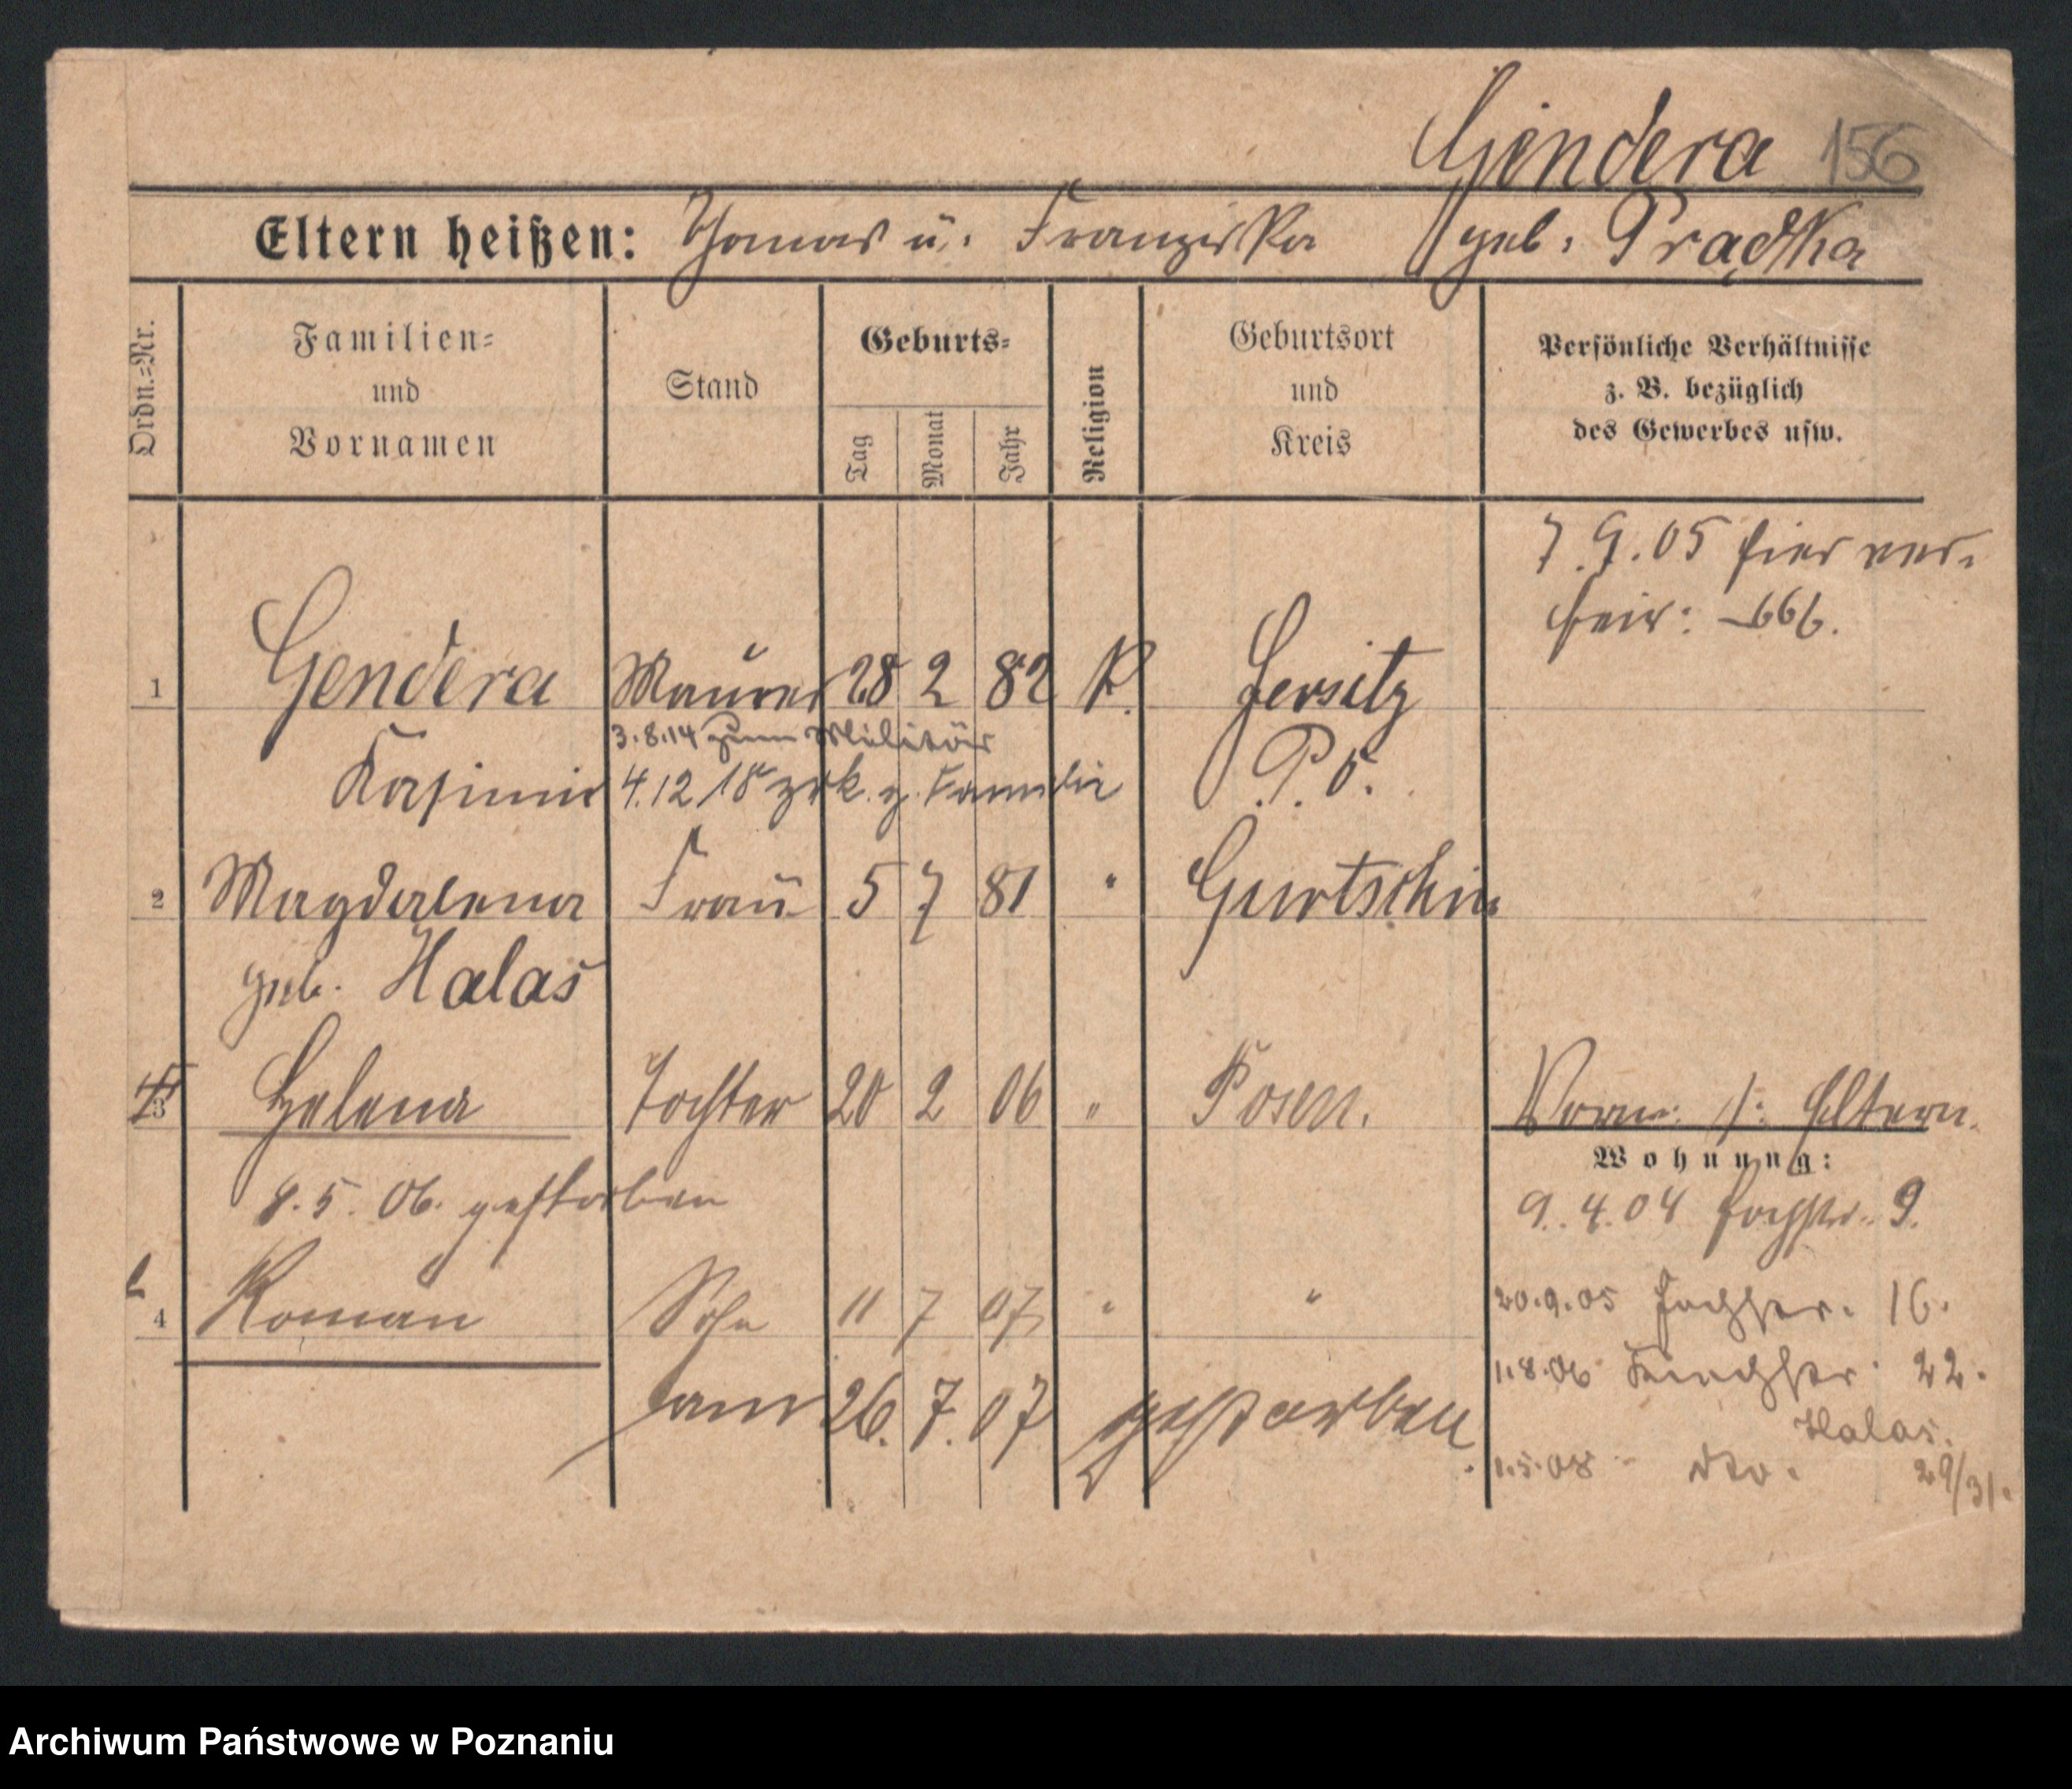 Gendera 156
Eltern heißen: Thomas u. Franziska geb. Prądka
Ordn.=Nr.
Familien=
und
Vornamen
Stand
Geburts=
Tag
Monat
Jahr
Religion
Geburtsort
und
Kreis
Persönliche Verhältnisse
z. B. bezüglich
des Gewerbes usw.
7.9.05 hier ver-
heir:
1 Gendera Maurer 28 2 82 K. Jersitz
3.8.14 zum Militär
Kasimir 4.12 18 zrk. z. Familie P. O.
2 Magdalena Frau 5 7 81 " Gurtschin
geb. Halas
3 Helena Tochter 20 2 06 " Posen. Vorm: /: Eltern.
Wohnung:
8.5.06. gestorben 9.4.04 9.
4 Roman Sohn 11 7 07 " " 20.9.05 16.
am 26.7.07 gestorben 1.8.06 22.
Halas.
1.5.08 - dto. 29/31.
Archiwum Państwowe w Poznaniu